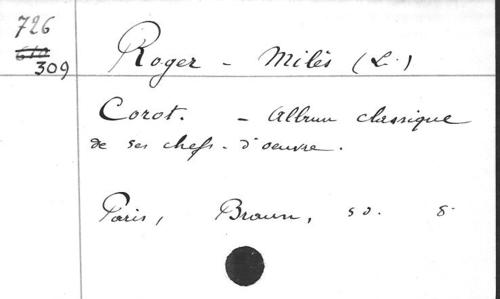 726
610
309
Roger - Milès (L.)
Corot. - Album classique
de ses chefs-d'oeuvre.
Paris, Braun, sd. 8°